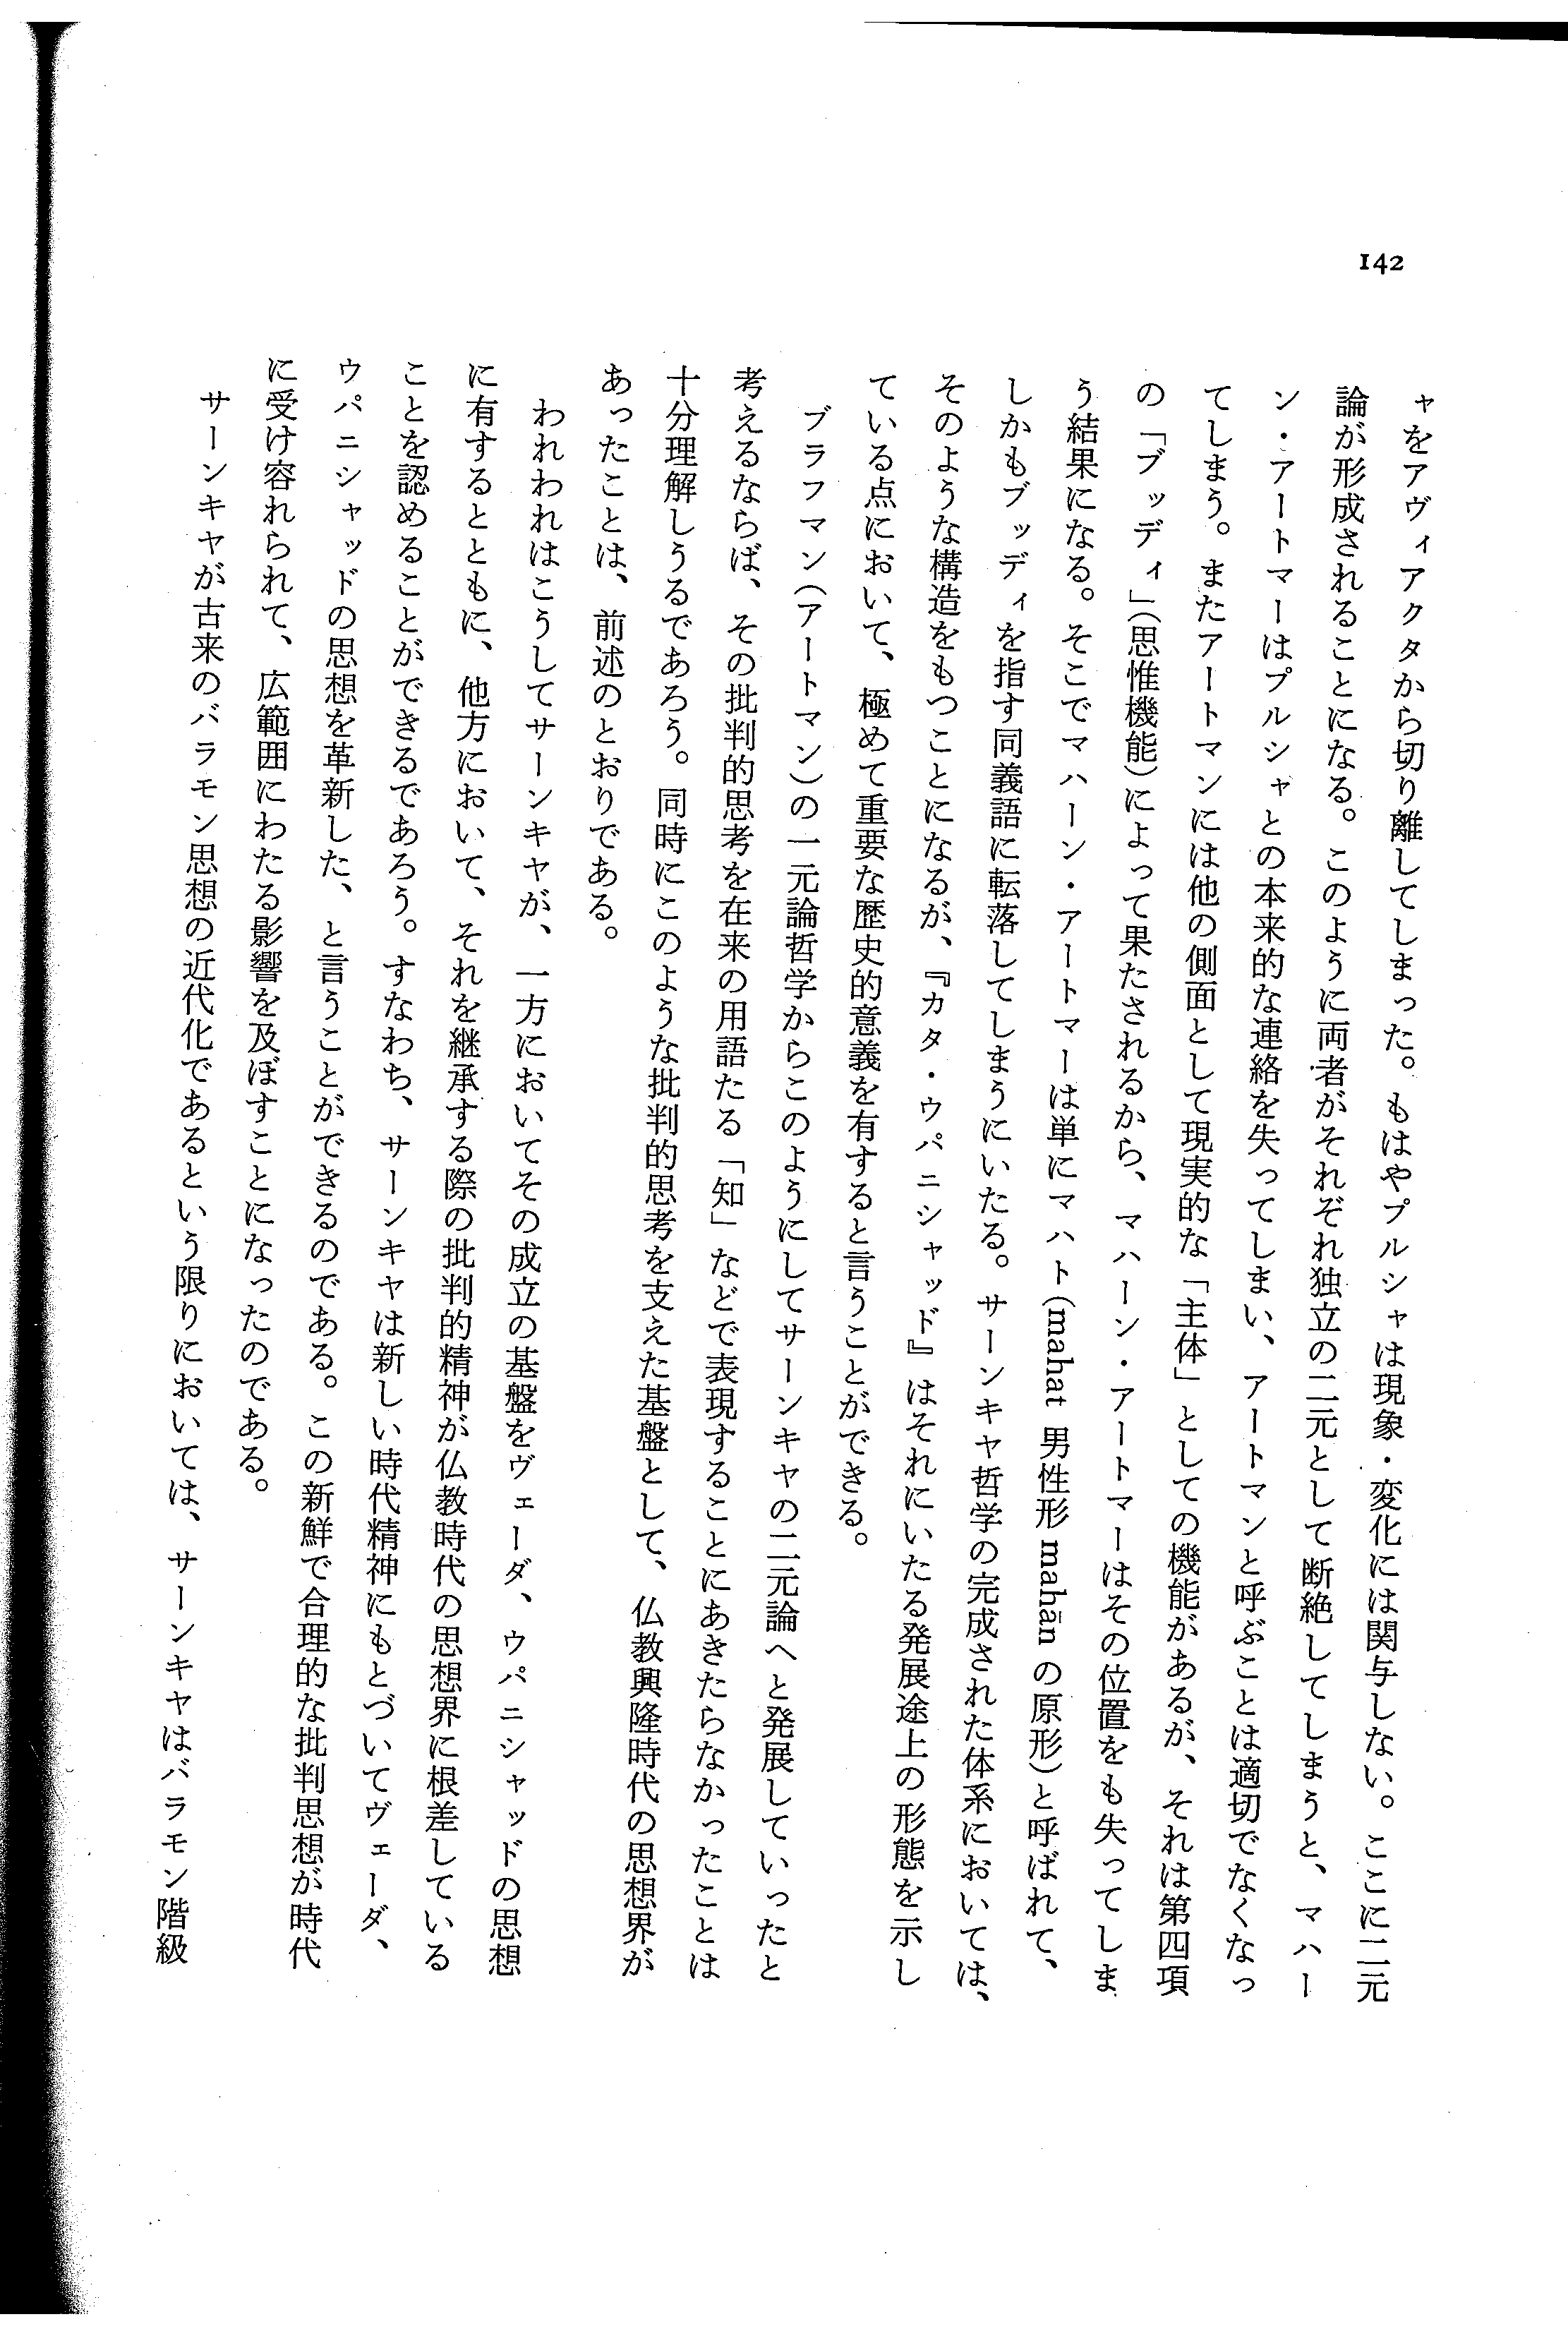 142
ャをアヴィアクタから切り離してしまった。もはやプルシャは現象・変化には関与しない。ここに二元
論が形成されることになる。このように両者がそれぞれ独立の二元として断絶してしまうと、マハー
ン・アートマーはプルシャとの本来的な連絡を失ってしまい、アートマンと呼ぶことは適切でなくなっ
てしまう。またアートマンには他の側面として現実的な「主体」としての機能があるが、それは第四項
の「ブッディ」(思惟機能)によって果たされるから、マハーン・アートマーはその位置をも失ってしま
う結果になる。そこでマハーン・アートマーは単にマハト(mahat 男性形 mahān の原形)と呼ばれて、
しかもブッディを指す同義語に転落してしまうにいたる。サーンキヤ哲学の完成された体系においては、
そのような構造をもつことになるが、『カタ・ウパニシャッド』はそれにいたる発展途上の形態を示し
ている点において、極めて重要な歴史的意義を有すると言うことができる。
ブラフマン(アートマン)の一元論哲学からこのようにしてサーンキヤの二元論へと発展していったと
考えるならば、その批判的思考を在来の用語たる「知」などで表現することにあきたらなかったことは
十分理解しうるであろう。同時にこのような批判的思考を支えた基盤として、仏教興隆時代の思想界が
あったことは、前述のとおりである。
われわれはこうしてサーンキヤが、一方においてその成立の基盤をヴェーダ、ウパニシャッドの思想
に有するとともに、他方において、それを継承する際の批判的精神が仏教時代の思想界に根差している
ことを認めることができるであろう。すなわち、サーンキヤは新しい時代精神にもとづいてヴェーダ、
ウパニシャッドの思想を革新した、と言うことができるのである。この新鮮で合理的な批判思想が時代
に受け容れられて、広範囲にわたる影響を及ぼすことになったのである。
サーンキヤが古来のバラモン思想の近代化であるという限りにおいては、サーンキヤはバラモン階級